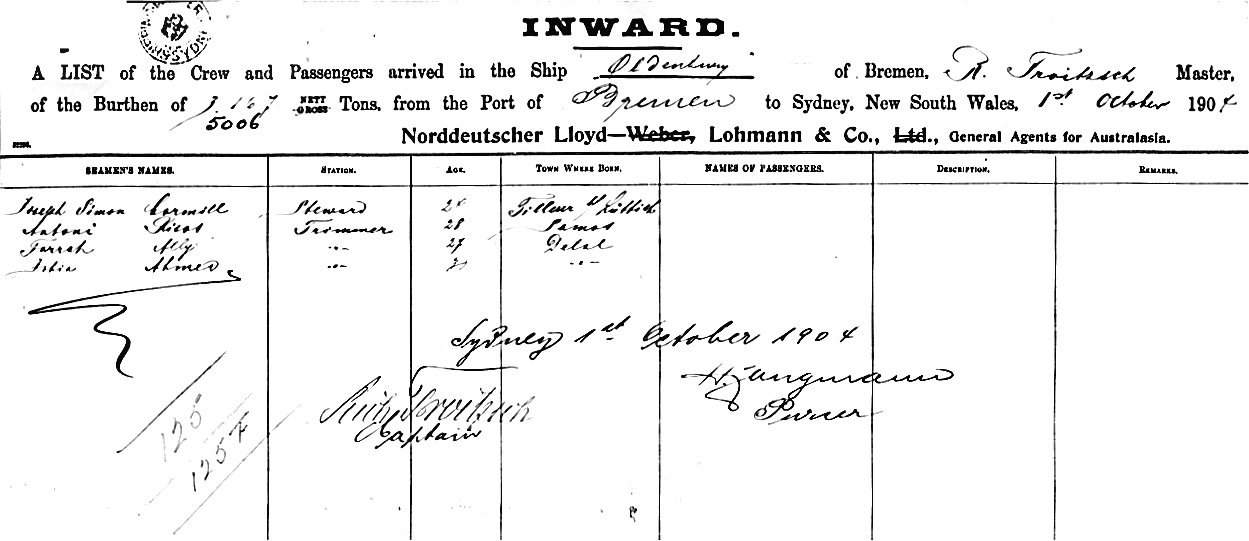 INWARD.
A LIST of the Crew and Passengers arrived in the Ship Oldenburg of Bremen, R. Troitzsch Master,
of the Burthen of 3.167 NETT Tons, from the Port of Bremen to Sydney, New South Wales, 1st October 1904
5006 GROSS
Norddeutscher Lloyd—Weber, Lohmann & Co., Ltd., General Agents for Australasia.
SEAMEN'S NAMES. STATION. AGE. TOWN WHERE BORN. NAMES OF PASSENGERS. DESCRIPTION. REMARKS.
Joseph Simon Steward 24 Tilleur b/ Lüttich
Antoni Trimmer 28 Samos
Farrah Ally -"- 27
Ahmed -"- -"-
Sydney 1st October 1904
H. Langmann
Rich. Troitzsch Purser
Captain
125
1254